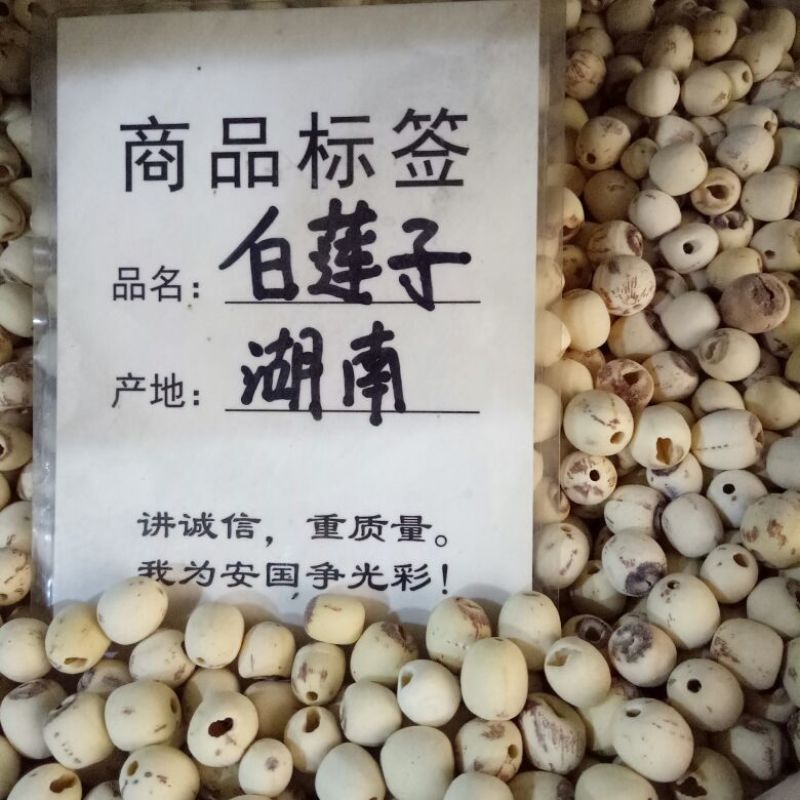 商品标签
品名：白莲子
产地：湖南
讲诚信，重质量。
我为安国争光彩！